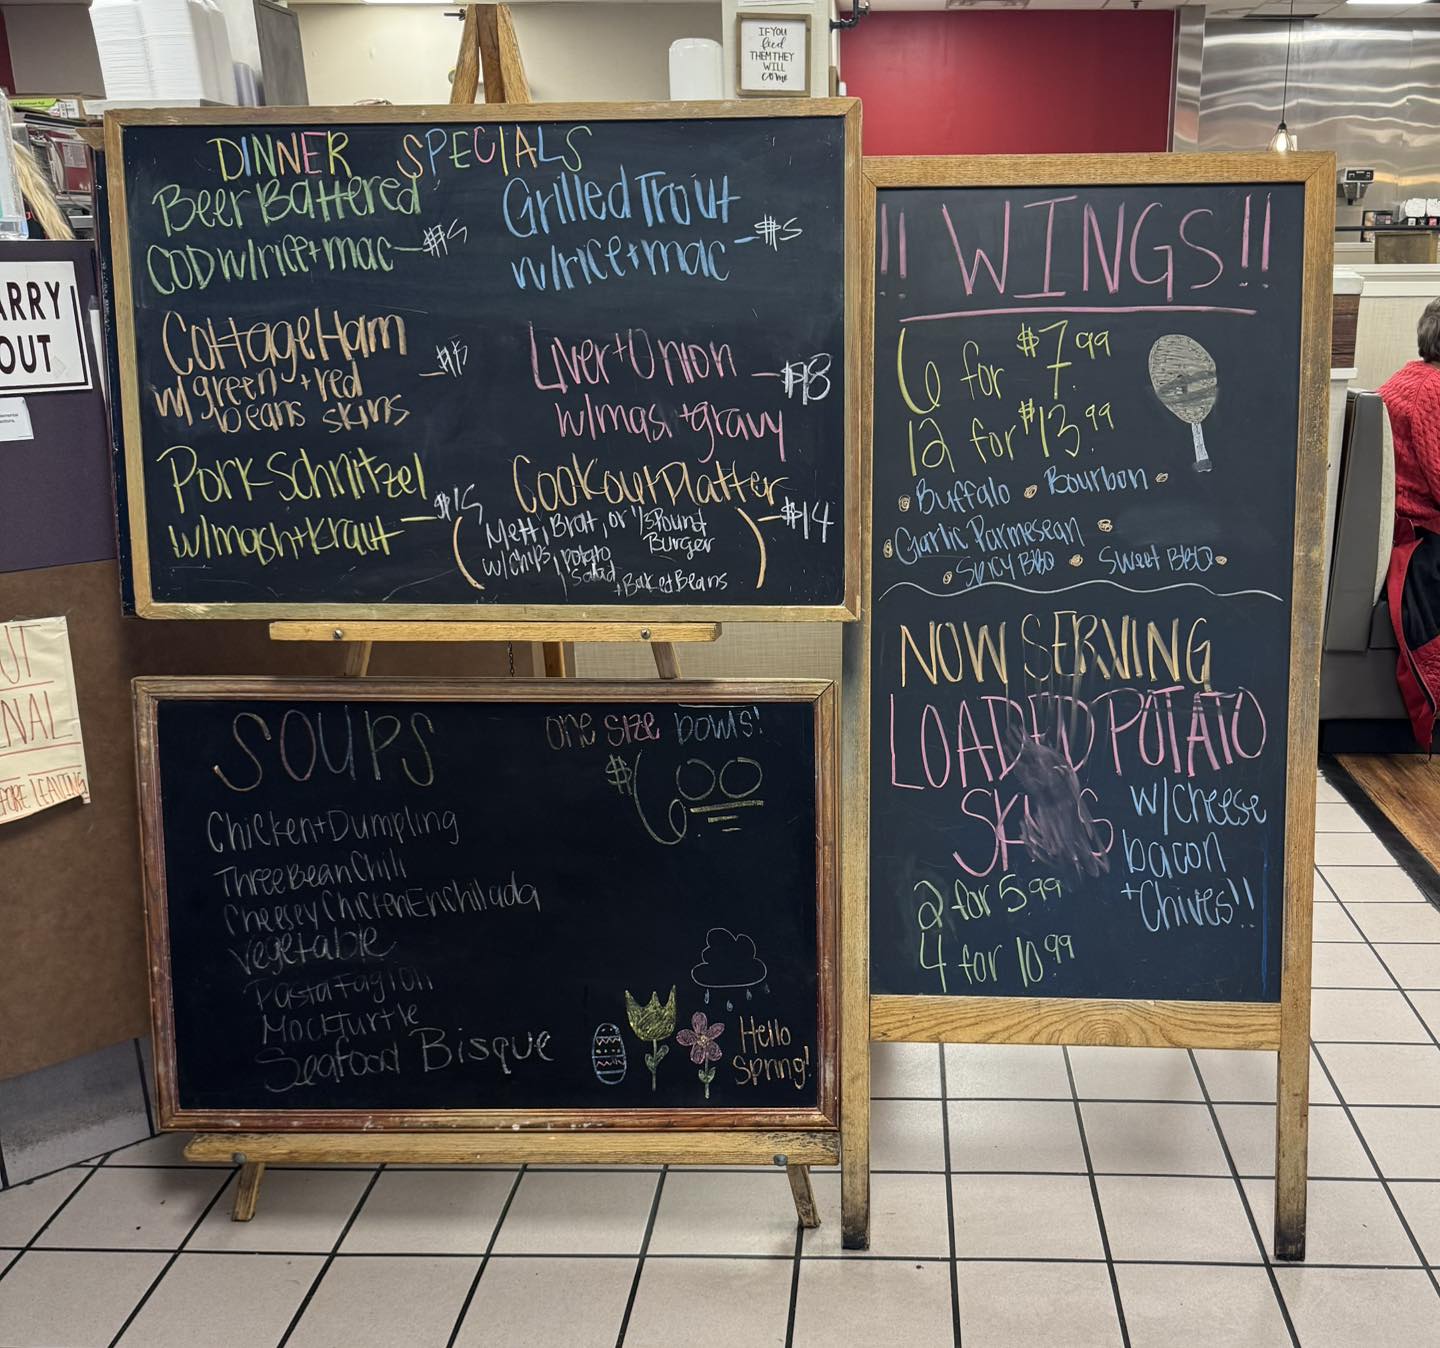 IF YOU
feed
THEM THEY
WILL
come
DINNER SPECIALS
Beer Battered
COD w/rice + mac
Grilled Trout
w/rice + mac
Cottage Ham
w/ green + red
beans skins
Liver + Onion
w/mash + gravy
Pork Schnitzel
w/mash + Kraut
Cookout Platter
$14
Mett, Brat, or 1/3 Pound
Burger
w/ chips, potato
salad
+ Baked Beans
SOUPS
one size bowls!
$6.00
Chicken + Dumpling
Three Bean Chili
Cheesey Chicken Enchilada
Vegetable
Pasta Fagioli
Mock Turtle
Seafood Bisque
Hello
Spring!
!! WINGS !!
6 for $7.99
12 for $13.99
Buffalo Bourbon
Garlic Parmesean
Spicy BBQ Sweet BBQ
NOW SERVING
LOADED POTATO
SKINS
w/cheese
bacon
+ Chives!!
2 for 5.99
4 for 10.99
ARRY
OUT
UT
NAL
FORE LEAVING